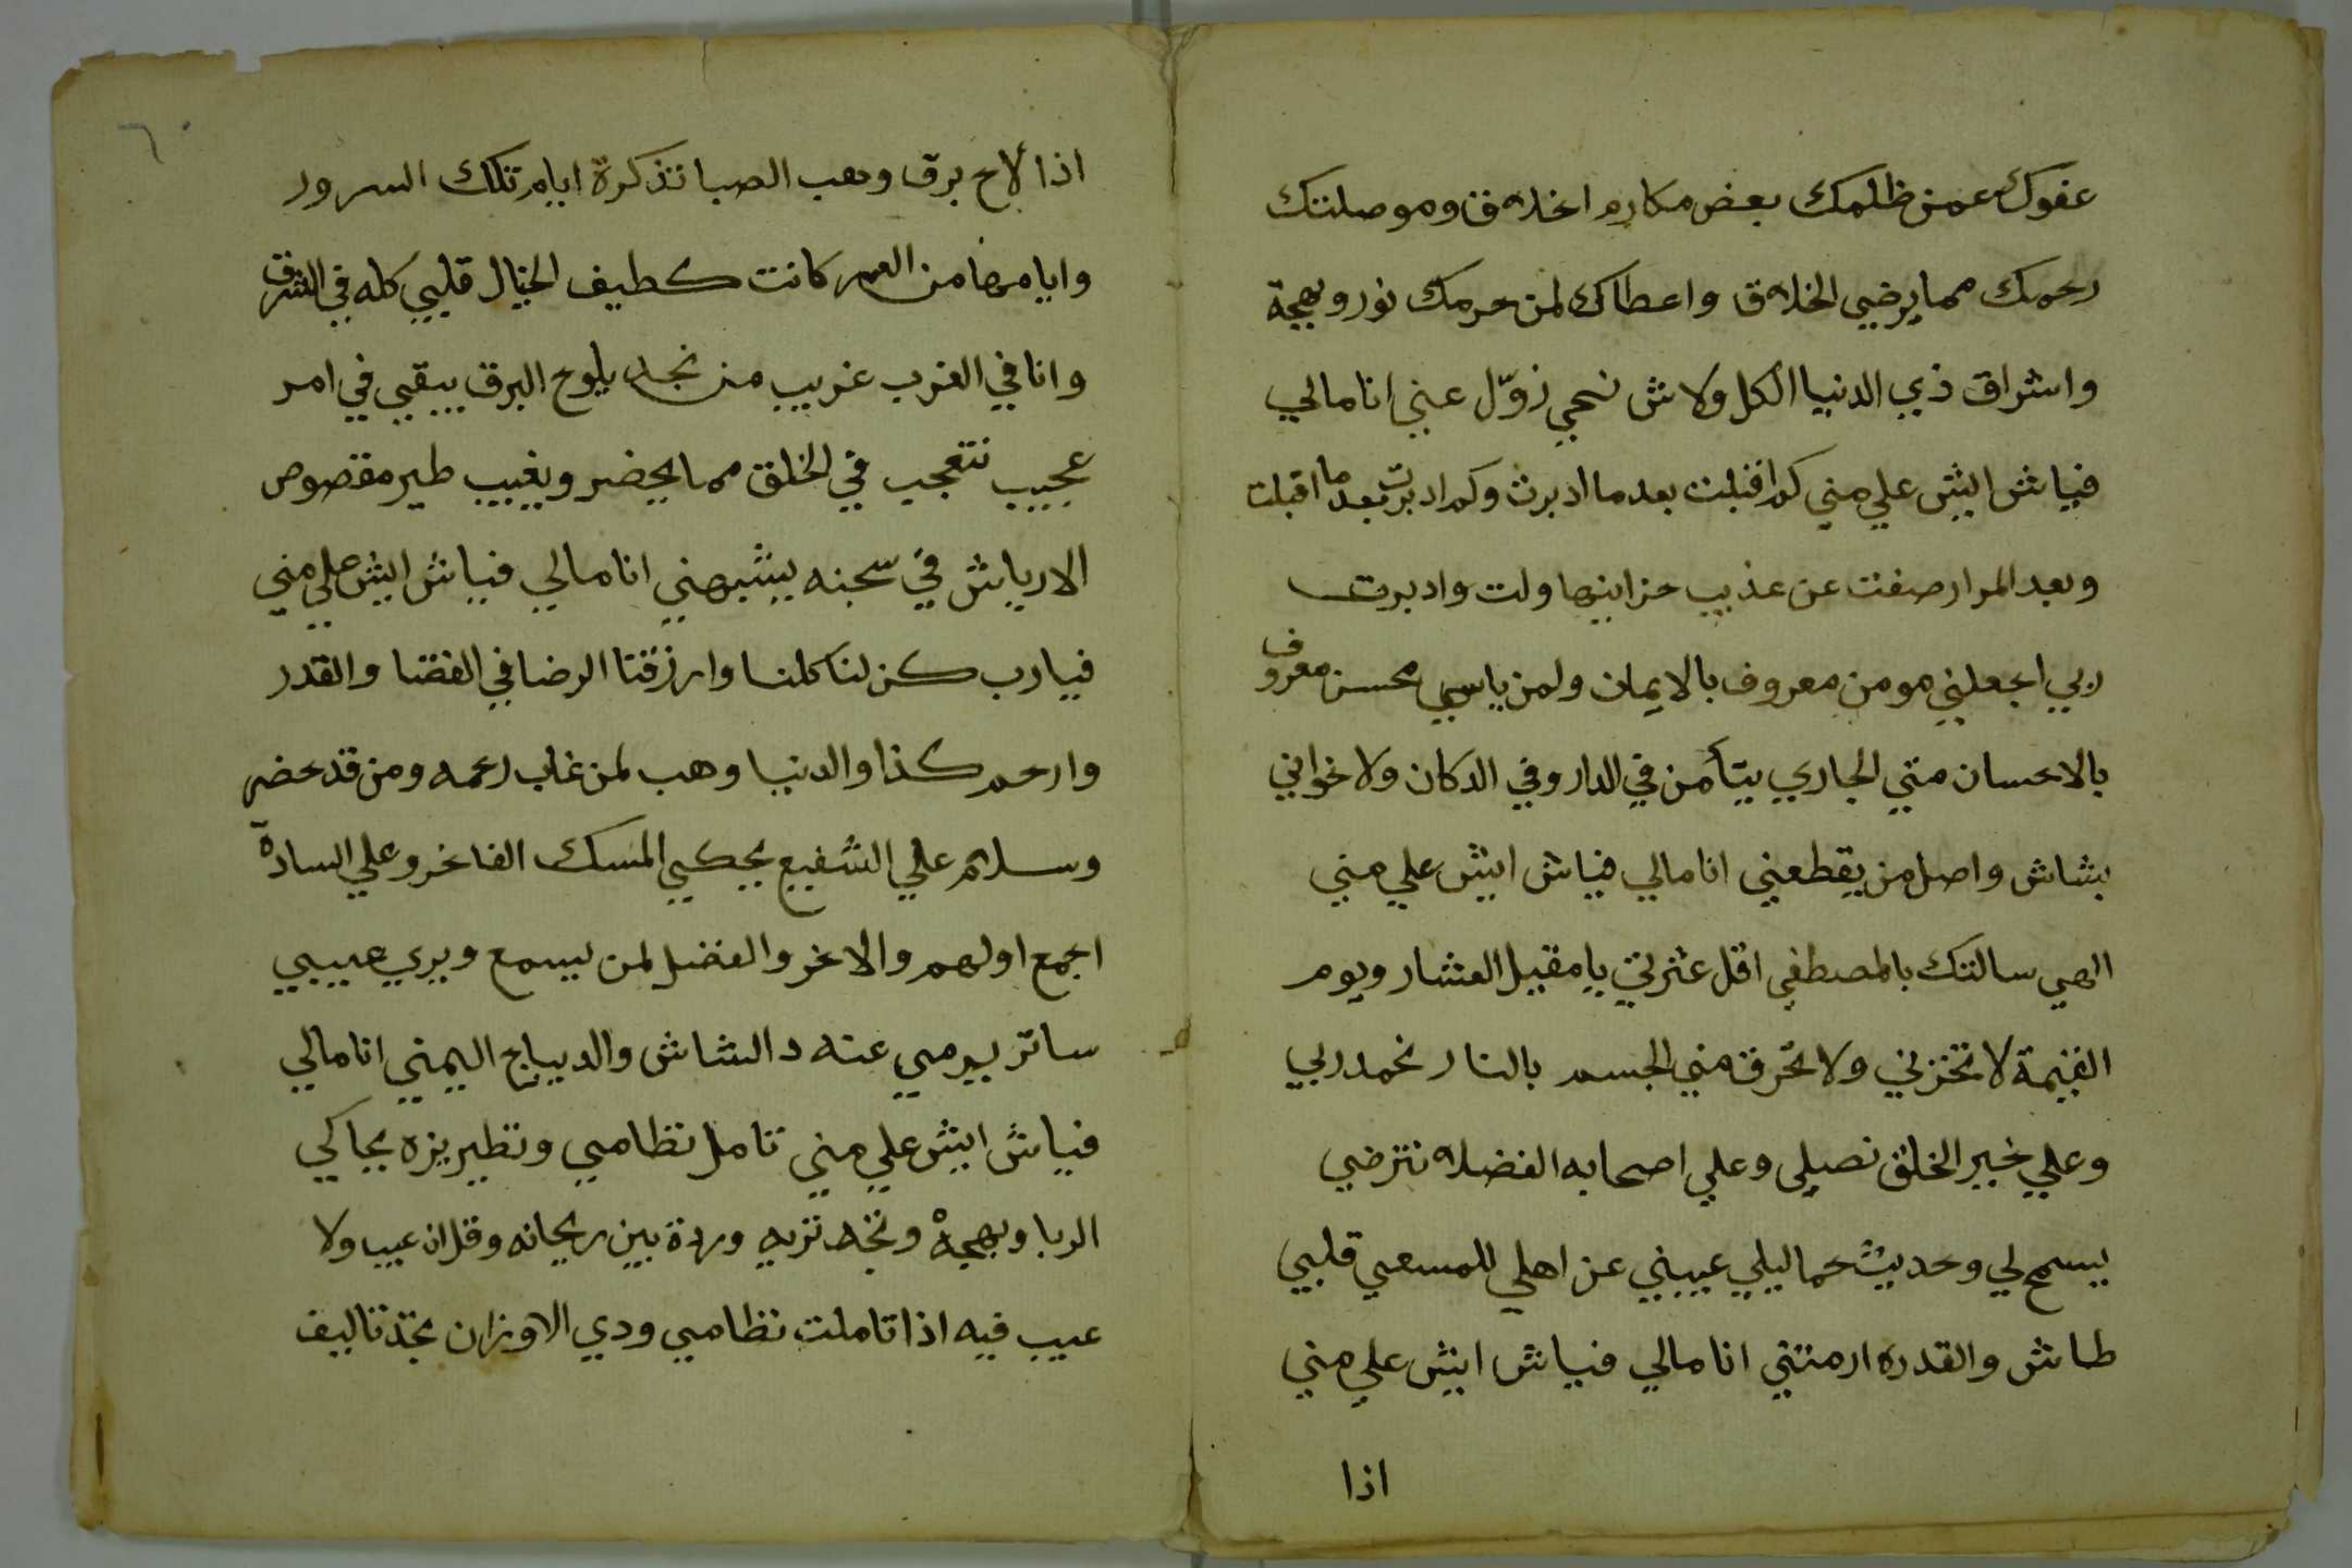 عفوك عمن ظلمك بعض مكارم اخلاق وموصلتك
رحمك مما يرضي الخلاق واعطاك لمن حرمك نور وبهجة
واشراق ذي الدنيا الكل ولاش نحمي زوّل عني انا مالي
فياش ايش علي مني كم اقبلت بعد ما ادبرت وكم ادبرت بعد ما اقبلت
وبعد المرار صفت عن عذيب حزاينها ولت وادبرت
ربي اجعلني مومن معروف بالايمان ولمن ياسي محسن معروف
بالاحسان متي الجاري يتأمن في الدار وفي الدكان ولاخواني
بشاش واصل من يقطعني انا مالي فياش ايش علي مني
الهي سالتك بالمصطفي اقل عثرتي يا مقيل العشار ويوم
القيمة لا تخزني ولا تحرق مني الجسم بالنار نحمد ربي
وعلي خير الخلق نصلي وعلي اصحابه الفضلاء نترضي
يسمح لي وحديث حما ليلي غيبني عن اهلي للمسعي قلبي
طاش والقدره ارمتني انا مالي فياش ايش علي مني
اذا
٦٠
اذا لاح برق وهب الصبا تذكرة ايام تلك السرور
وايام مضامن العمر كانت كطيف الخيال قلبي كله في الشرق
وانا في الغرب غريب من نجد يلوح البرق يبقي في امر
عجيب نتعجب في الخلق مما يحضر ويغيب طير مقصوص
الارياش في سجنه يشبهني انا مالي فياش ايش علي مني
فيارب كن لنا كلنا وارزقنا الرضا في القضا والقدر
وارحم كذا والدنيا وهب لمن غاب رحمه ومن قد حضر
وسلام علي الشفيع يحكي المسك الفاخر وعلي السادة
اجمع اولهم والاخر والفضل لمن يسمع ويري عيبي
ساتر يرمي عنه د الشاش والديباج اليمني انا مالي
فياش ايش علي مني تامل نظامي وتطريزه يحاكي
الربا وبهجة ونخه تربه وردة بين ريحانه وقل ان عيب ولا
عيب فيه اذا تاملت نظامي ودي الاوزان تجد تاليف